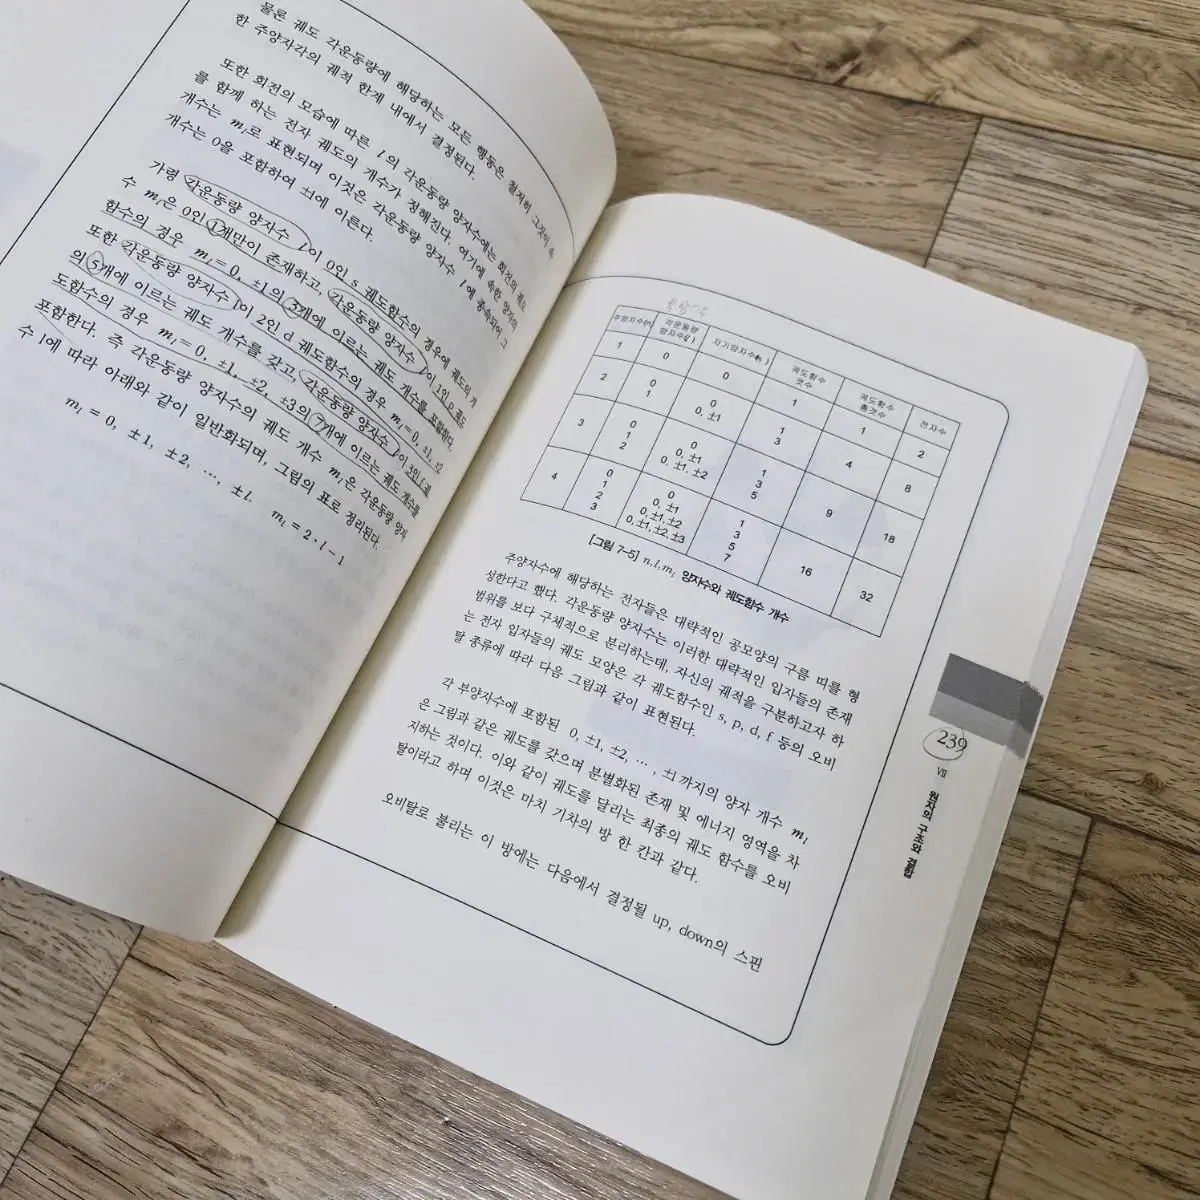 물론 궤도 각운동량에 해당하는 모든 행동은 철저히 그것이 속
한 주양자각의 궤적 한계 내에서 결정된다.
또한 회전의 모습에 따른 l의 각운동량 양자수에는 회전의 궤도
를 함께 하는 전자 궤도의 개수가 정해진다. 여기에 속한 양자의
개수는 ml로 표현되며 이것은 각운동량 양자수 l에 종속되어 그
개수는 0을 포함하여 ±l에 이른다.
가령 각운동량 양자수 l이 0인 s 궤도함수의 경우에 궤도의 개
수 ml은 0인 1개만이 존재하고, 각운동량 양자수 l이 1인 p 궤도
함수의 경우 ml = 0, ±1의 3개에 이르는 궤도 개수를 포함한다.
또한 각운동량 양자수 l이 2인 d 궤도함수의 경우 ml = 0, ±1, ±2
의 5개에 이르는 궤도 개수를 갖고, 각운동량 양자수 l이 3인 f 궤
도함수의 경우 ml = 0, ±1, ±2, ±3의 7개에 이르는 궤도 개수를
포함한다. 즉 각운동량 양자수의 궤도 개수 ml은 각운동량 양자
수 l에 따라 아래와 같이 일반화되며, 그림의 표로 정리된다.
ml = 0, ±1, ±2, …, ±l. ml = 2·l-1
주양자수(n) 각운동량 양자수(l) 자기양자수(ml) 궤도함수 갯수 궤도함수 총갯수 전자수
1 0 0 1 1 2
2 0 0 1 4 8
1 0, ±1 3
3 0 0 1 9 18
1 0, ±1 3
2 0, ±1, ±2 5
4 0 0 1 16 32
1 0, ±1 3
2 0, ±1, ±2 5
3 0, ±1, ±2, ±3 7
[그림 7-5] n, l, ml 양자수와 궤도함수 개수
주양자수에 해당하는 전자들은 대략적인 공모양의 구름 띠를 형
성한다고 했다. 각운동량 양자수는 이러한 대략적인 입자들의 존재
범위를 보다 구체적으로 분리하는데, 자신의 궤적을 구분하고자 하
는 전자 입자들의 궤도 모양은 각 궤도함수인 s, p, d, f 등의 오비
탈 종류에 따라 다음 그림과 같이 표현된다.
각 부양자수에 포함된 0, ±1, ±2, …, ±l까지의 양자 개수 ml
은 그림과 같은 궤도를 갖으며 분별화된 존재 및 에너지 영역을 차
지하는 것이다. 이와 같이 궤도를 달리는 최종의 궤도 함수를 오비
탈이라고 하며 이것은 마치 기차의 방 한 칸과 같다.
오비탈로 불리는 이 방에는 다음에서 결정될 up, down의 스핀
239
VII
원자의 구조와 결합